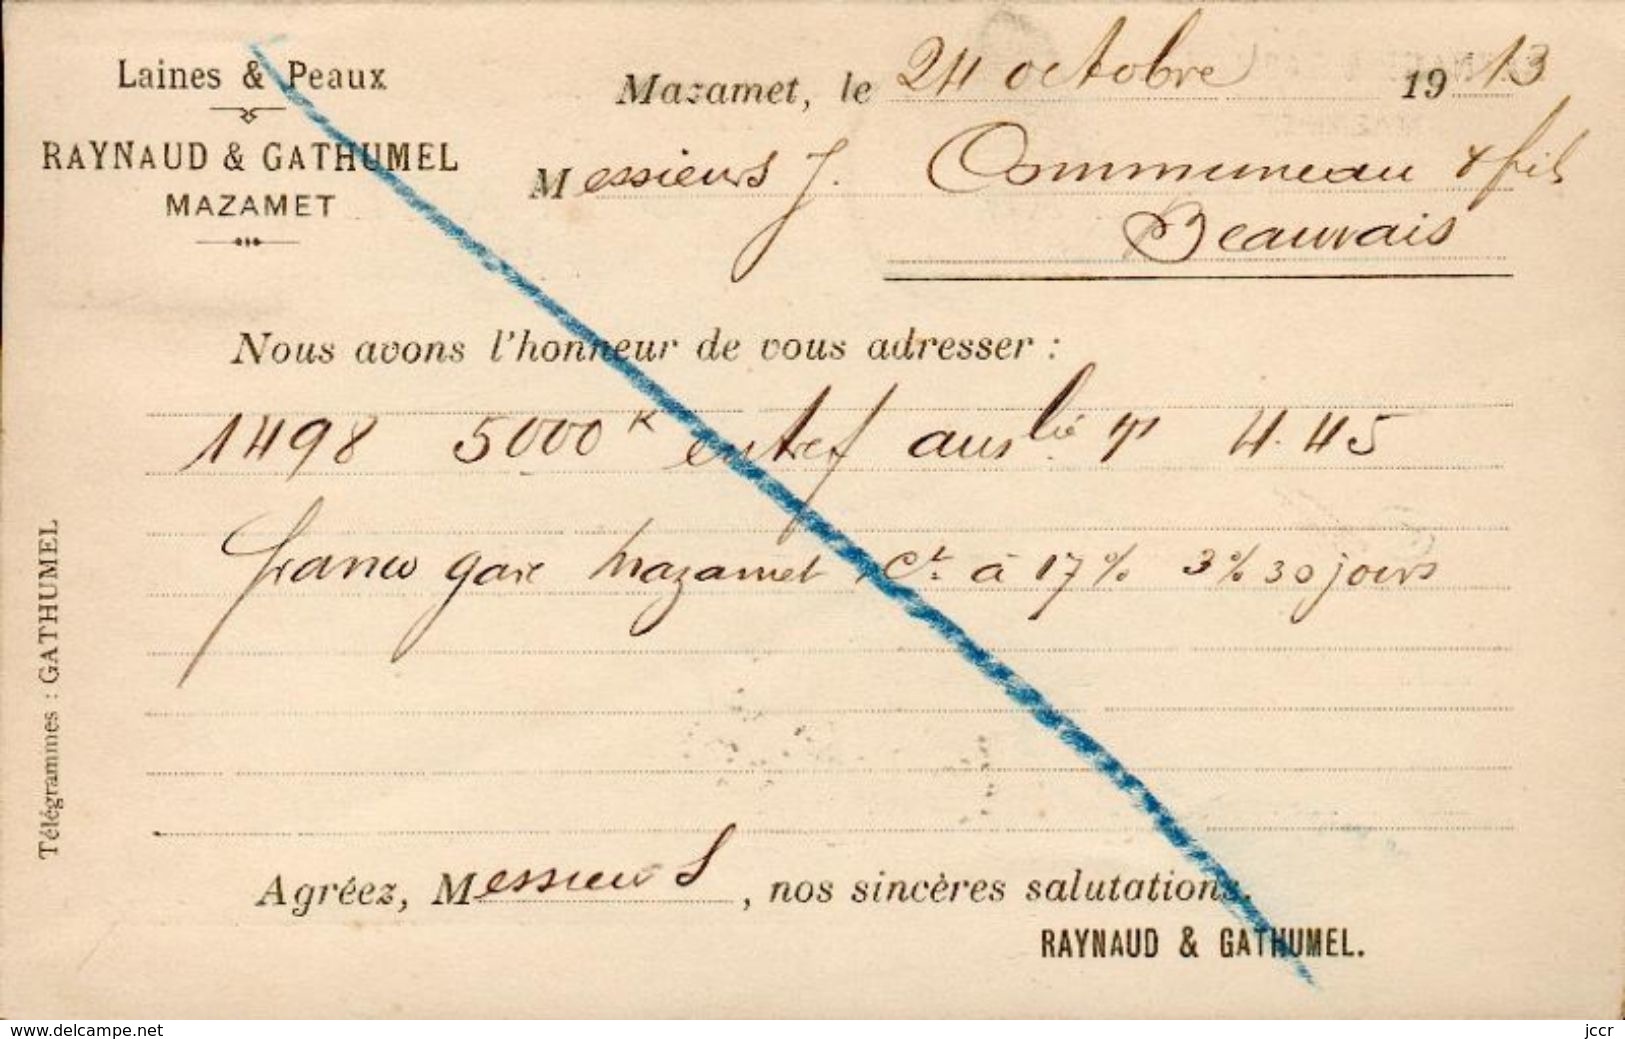 Laines & Peaux
RAYNAUD & GATHUMEL
MAZAMET
Mazamet, le 24 octobre 1913
Messieurs J. Communeau & fils
Beauvais
Nous avons l'honneur de vous adresser :
1498 5000 K entref aus 4.45
franco gare Mazamet Ct. à 17% 3% 30 jours
Agréez, Messieurs, nos sincères salutations.
RAYNAUD & GATHUMEL.
Télégrammes : GATHUMEL
www.delcampe.net
jccr